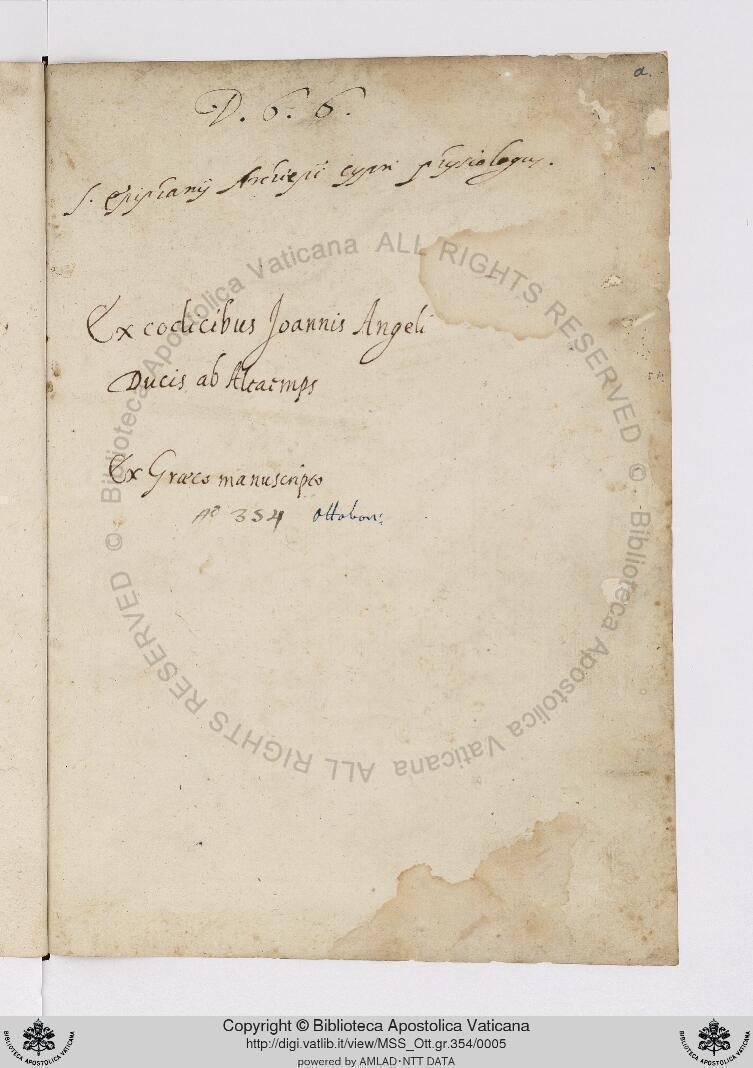 a.
D. 6. 6.
S. Epiphanij Archiepi cypri physiologus.
Ex codicibus Joannis Angeli
Ducis ab Altaemps
Ex Græco manuscripto
No 354 Ottobon:
© Biblioteca Apostolica Vaticana ALL RIGHTS RESERVED © Biblioteca Apostolica Vaticana ALL RIGHTS RESERVED
Copyright © Biblioteca Apostolica Vaticana
http://digi.vatlib.it/view/MSS_Ott.gr.354/0005
powered by AMLAD·NTT DATA
BIBLIOTECA APOSTOLICA VATICANA
BIBLIOTECA APOSTOLICA VATICANA